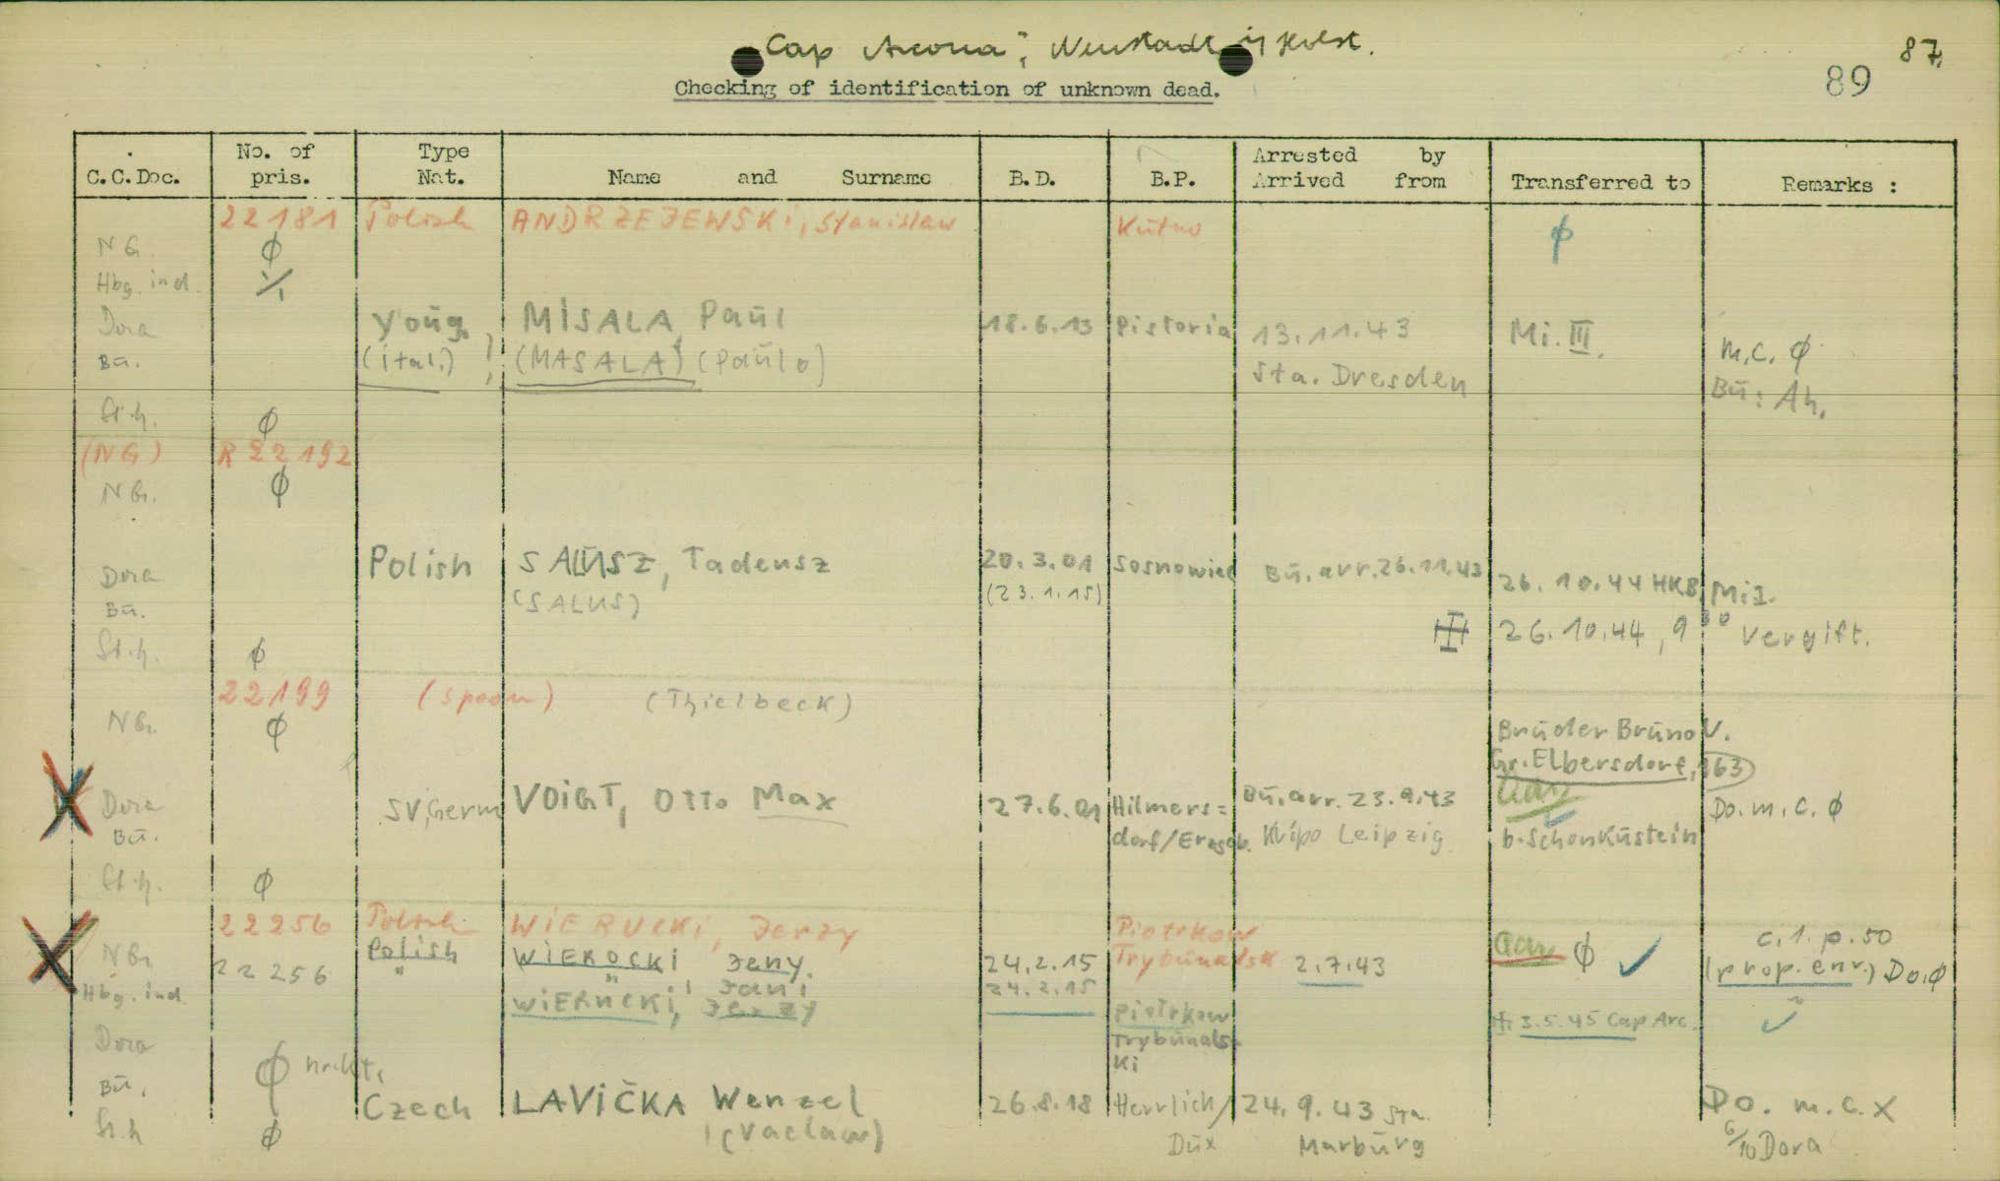 "Cap Arcona", Neustadt i/ Holst.
87,
89
Checking of identification of unknown dead.
C.C.Doc. No. of pris. Type Nat. Name and Surname B.D. B.P. Arrested by Arrived from Transferred to Remarks :
22181 Polish ANDRZEJEWSKi, Stanislaw Kutno
NG. ϕ ϕ
Hbg. ind. ·/.
Dora Youg. MISALA Paul 18.6.13 Pistoria 13.11.43 Mi. III.
Bu. (ital.) (MASALA) (Paulo) Sta. Dresden m.c. ϕ
Bu: Ah.
St.h. ϕ
(NG) R 22192
NG. ϕ
Dora Polish SALUSZ, Tadeusz 20.3.01 Sosnowiec Bu. arr. 26.11.43 26.10.44 HKB Mi I.
Bu. (SALUS) (23.1.15)
26.10.44, 9 30 Vergift.
St.h. ϕ
22199 (spoon) (Thielbeck)
NG. ϕ
Bruder Bruno V.
Gr. Elbersdorf, 163
Dora SV, Germ VOIGT, Otto Max 27.6.01 Hilmers= Bu. arr. 23.9.43 Do. m.c. ϕ
Bu. dorf/Erzgeb. Kripo Leipzig b. Schonkustein
St.h. ϕ
22256 Polish WIERUCKI, Jerzy Piotrkow c.1. p.50
NG. Polish WIEROCKI Jeny. 24.2.15 Trybunalsk 2.7.43 ϕ ✓ (prop. env.) Do.ϕ
22256 " " Jani 24.2.15
Hbg. ind. WIERUCKI, Jerzy Piotrkow 3.5.45 Cap Arc. ✓
Dora Trybunals-
ki
Bu. ϕ
Czech LAVIČKA Wenzel 26.8.18 Herrlich/ 24.9.43 Sta. Do. m.c. X
St.h ϕ (Vaclaw) Dux Marburg 6/10 Dora